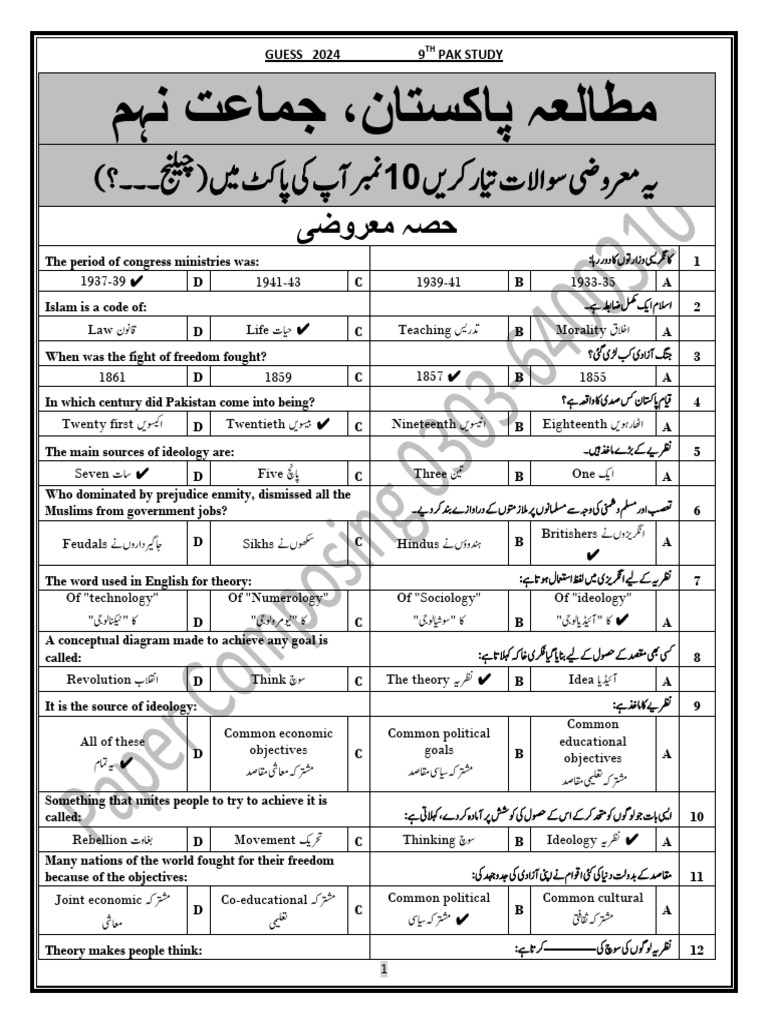 GUESS 2024 9TH PAK STUDY
مطالعہ پاکستان، جماعت نہم
یہ معروضی سوالات تیار کریں 10 نمبر آپ کی پاکٹ میں (چیلنج ۔۔۔؟)
حصہ معروضی
The period of congress ministries was: کانگریسی وزارتوں کا دور رہا: 1
1937-39 ✔ D 1941-43 C 1939-41 B 1933-35 A
Islam is a code of: اسلام ایک مکمل ضابطہ ہے۔ 2
Law قانون D Life حیات ✔ C Teaching تدریس B Morality اخلاق A
When was the fight of freedom fought? جنگ آزادی کب لڑی گئی؟ 3
1861 D 1859 C 1857 ✔ B 1855 A
In which century did Pakistan come into being? قیام پاکستان کس صدی کا واقعہ ہے؟ 4
Twenty first اکیسویں D Twentieth بیسویں ✔ C Nineteenth انیسویں B Eighteenth اٹھارہویں A
The main sources of ideology are: نظریے کے بڑے ماخذ ہیں۔ 5
Seven سات ✔ D Five پانچ C Three تین B One ایک A
Who dominated by prejudice enmity, dismissed all the
Muslims from government jobs? تعصب اور مسلم دشمنی کی وجہ سے مسلمانوں پر ملازمتوں کے دروازے بند کر دیے۔ 6
Feudals جاگیرداروں نے D Sikhs سکھوں نے C Hindus ہندوؤں نے B Britishers انگریزوں نے ✔ A
The word used in English for theory: نظریہ کے لیے انگریزی میں لفظ استعمال ہوتا ہے: 7
Of "technology" D Of "Numerology" C Of "Sociology" B Of "ideology" A
کا "ٹیکنالوجی" کا "نیومرولوجی" کا "سوشیالوجی" کا "آئیڈیالوجی" ✔
A conceptual diagram made to achieve any goal is
called: کسی بھی مقصد کے حصول کے لیے بنایا گیا فکری خاکہ کہلاتا ہے: 8
Revolution انقلاب D Think سوچ C The theory نظریہ ✔ B Idea آئیڈیا A
It is the source of ideology: نظریے کا ماخذ ہے: 9
All of these یہ تمام ✔ D Common economic objectives مشترکہ معاشی مقاصد C Common political goals مشترکہ سیاسی مقاصد B Common educational objectives مشترکہ تعلیمی مقاصد A
Something that unites people to try to achieve it is
called: ایسی بات جو لوگوں کو متحد کر کے اس کے حصول کی کوشش پر آمادہ کر دے، کہلاتی ہے: 10
Rebellion بغاوت D Movement تحریک C Thinking سوچ B Ideology نظریہ ✔ A
Many nations of the world fought for their freedom
because of the objectives: مقاصد کے بدولت دنیا کی کئی اقوام نے اپنی آزادی کی جدوجہد کی: 11
Joint economic مشترکہ معاشی D Co-educational مشترکہ تعلیمی C Common political مشترکہ سیاسی ✔ B Common cultural مشترکہ ثقافتی A
Theory makes people think: نظریہ لوگوں کی سوچ کی ———— کرتا ہے: 12
1
Paper Composing 0303-6400310